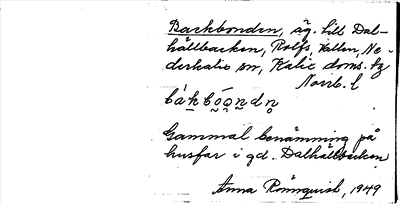 Backbonden, äg. till Dal-
hållbacken, Rolfs, Vallen, Ne-
derkalix sn, Kalix doms. tg
Norrb. l
Gammal benämning på
husfar i gd. Dalhållbacken
Anna Rönnquist, 1949